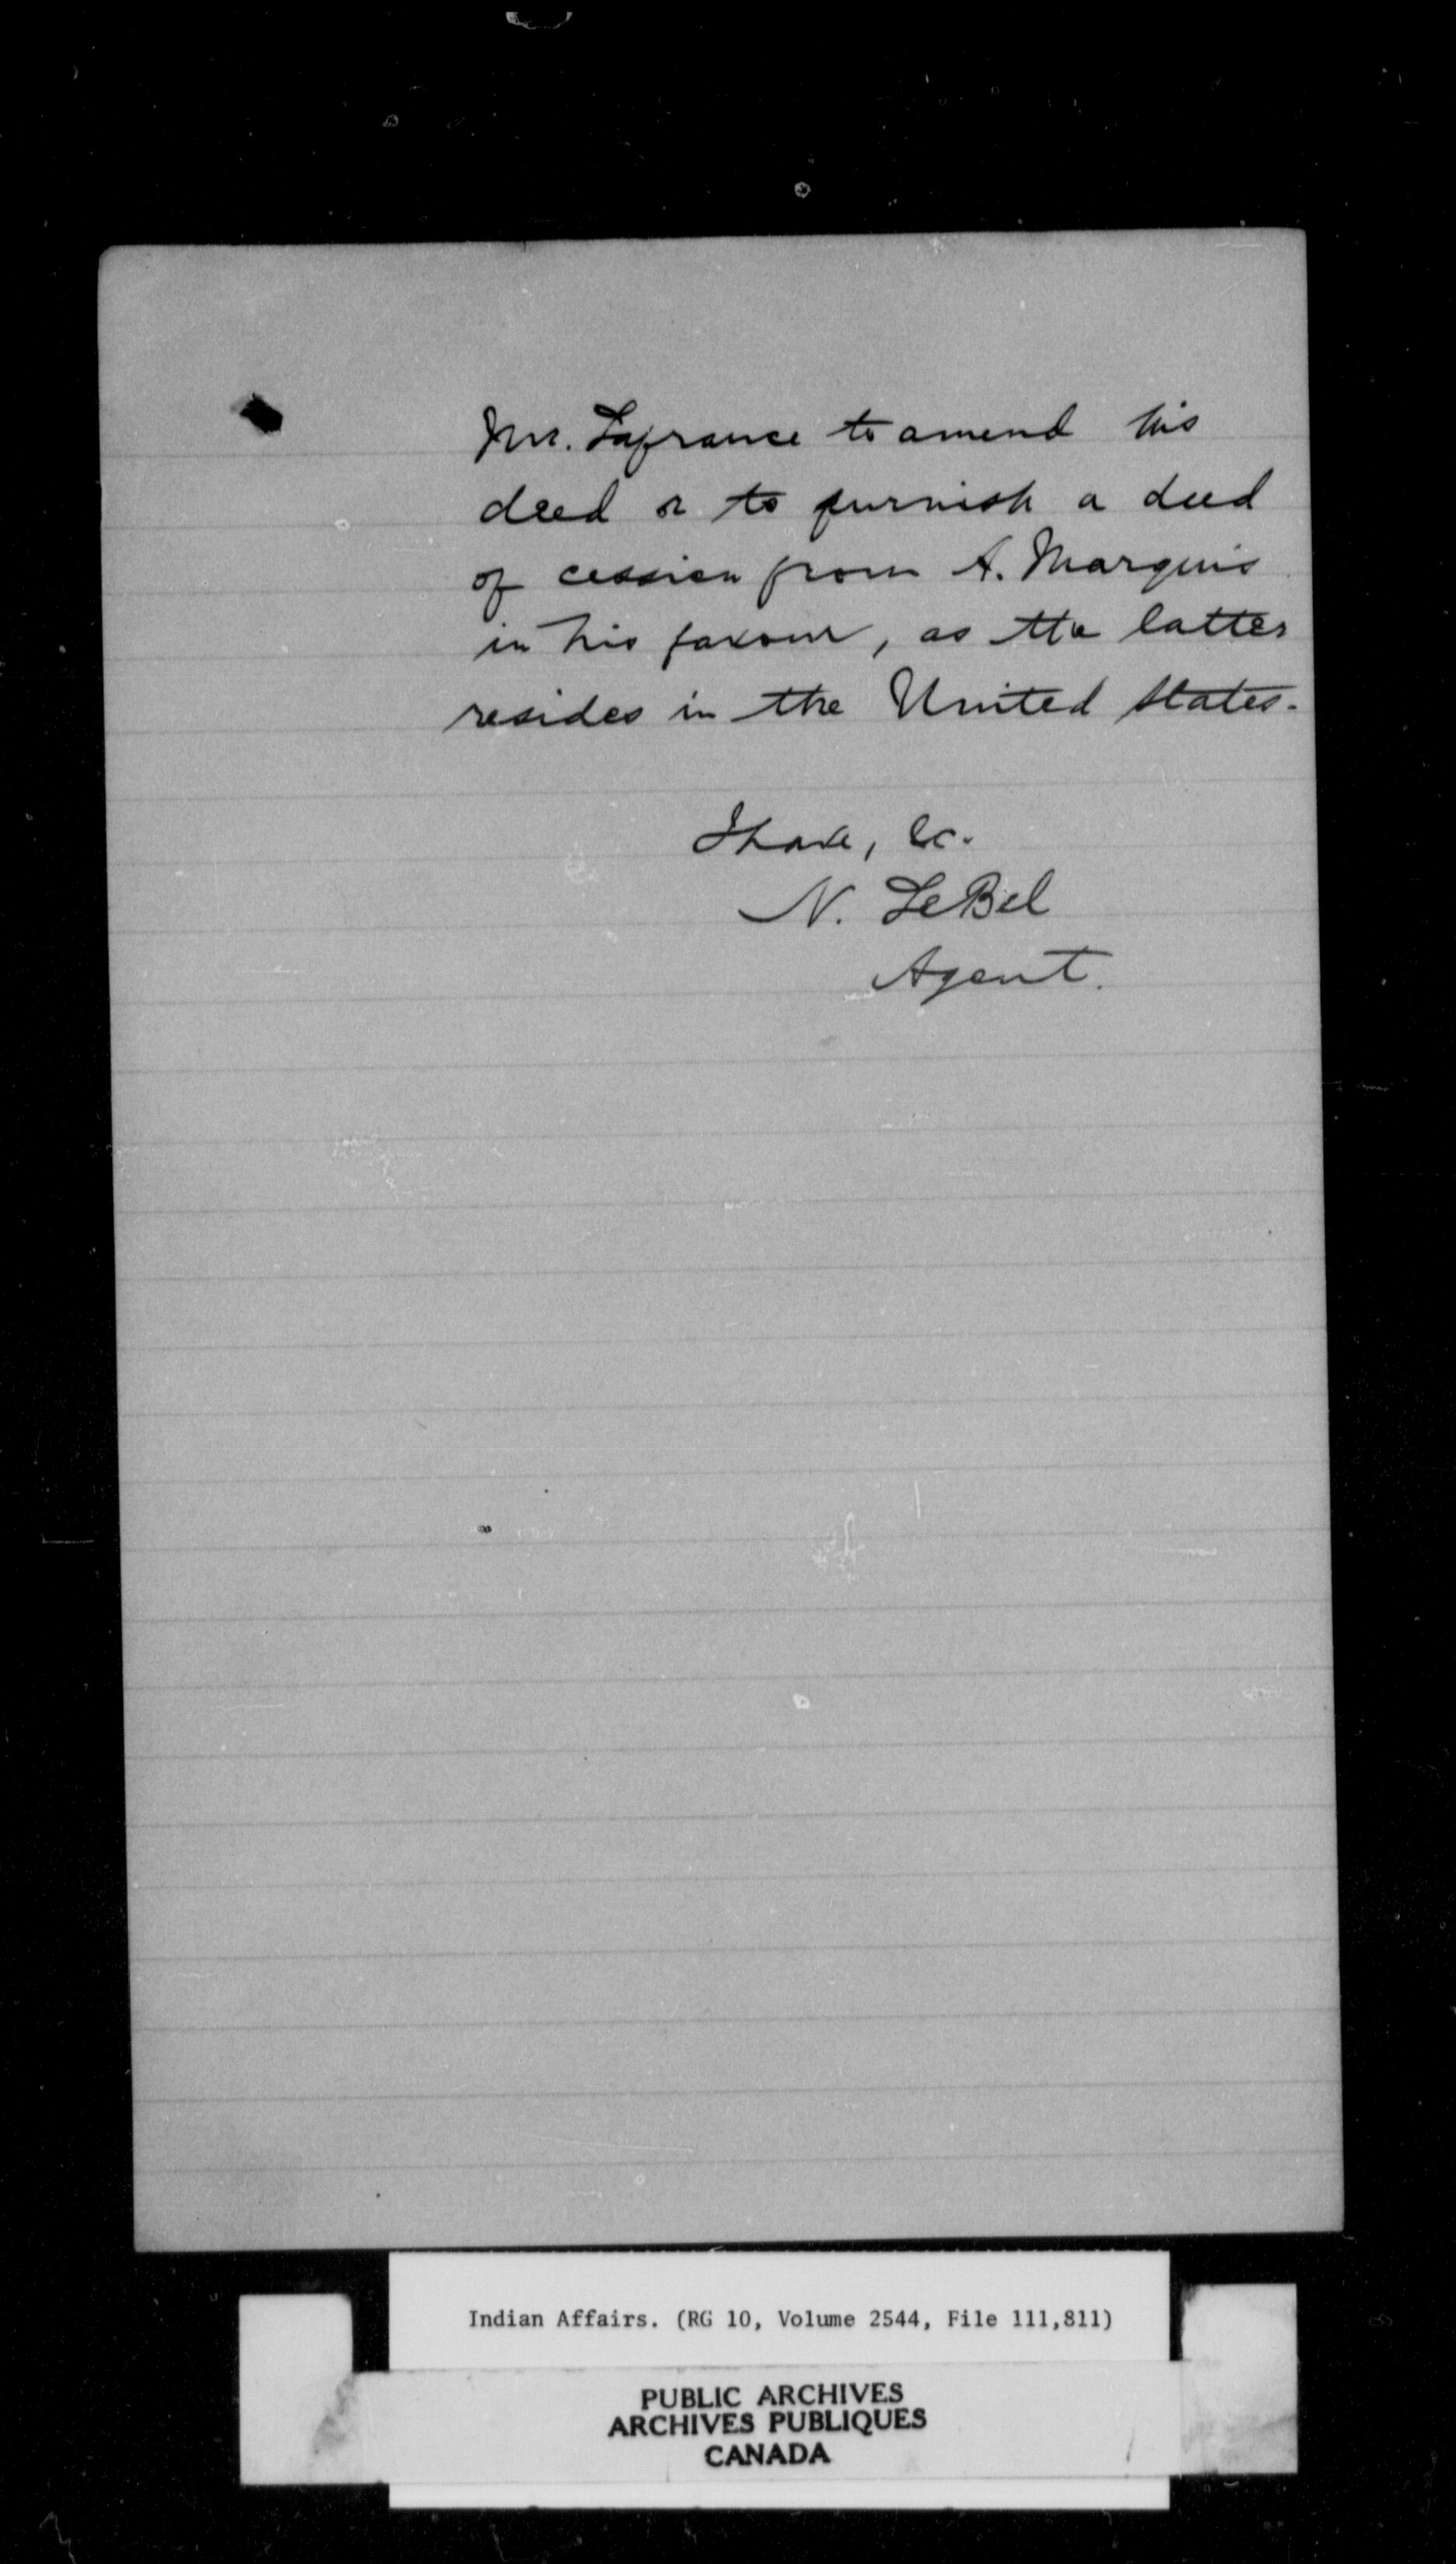 Mr. Lafrance to amend his
deed or to furnish a deed
of cession from A. Marquis
in his favour, as the latter
resides in the United States.
I have, &c.
N. LeBel
Agent.
Indian Affairs. (RG 10, Volume 2544, File 111,811)
PUBLIC ARCHIVES
ARCHIVES PUBLIQUES
CANADA